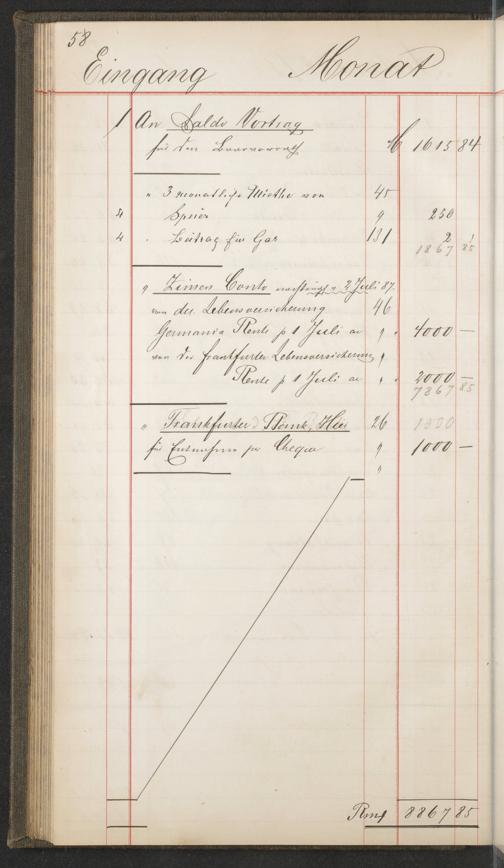 58
Eingang Monat
1 An Saldo Vortrag
für den Baarvorrath M 1615 84
" 3 monatliche Miethe von 45
4 Speier " 250
4 " Beitrag für Gas 131 2 1
1867 85
" Zinsen Conto 2 Juli 87.
von der Lebensversicherung 46
Germania Rente p 1 Juli ac " " 4000 —
von der Frankfurter Lebensversicherung "
Rente p 1 Juli ac " " 2000 —
7867 85
" Frankfurter Bank, Hier 26 1300
für Entnahme per Cheque " 1000 —
"
Rmk 8867 85